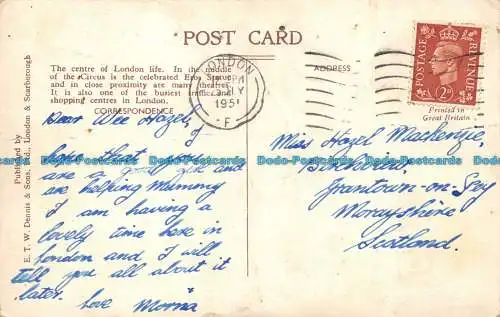 POST CARD
The centre of London life. In the middle
of the Circus is the celebrated Eros Statue
and in close proximity are many theatres.
It is also one of the busiest traffic and
shopping centres in London.
CORRESPONDENCE
ADDRESS
Published by
E. T. W. Dennis & Sons, Ltd., London & Scarborough
LONDON
1951
F
POSTAGE
REVENUE
2D
Printed in
Great Britain
Dear Wee Hazel,
I
hope that you
are a good girl and
are helping Mummy
I am having a
lovely time here in
London and I will
tell you all about it
later. Love Morna
Miss Hazel Mackenzie,
Grantown-on-Spey
Morayshire
Scotland.
Dodo-Postcards